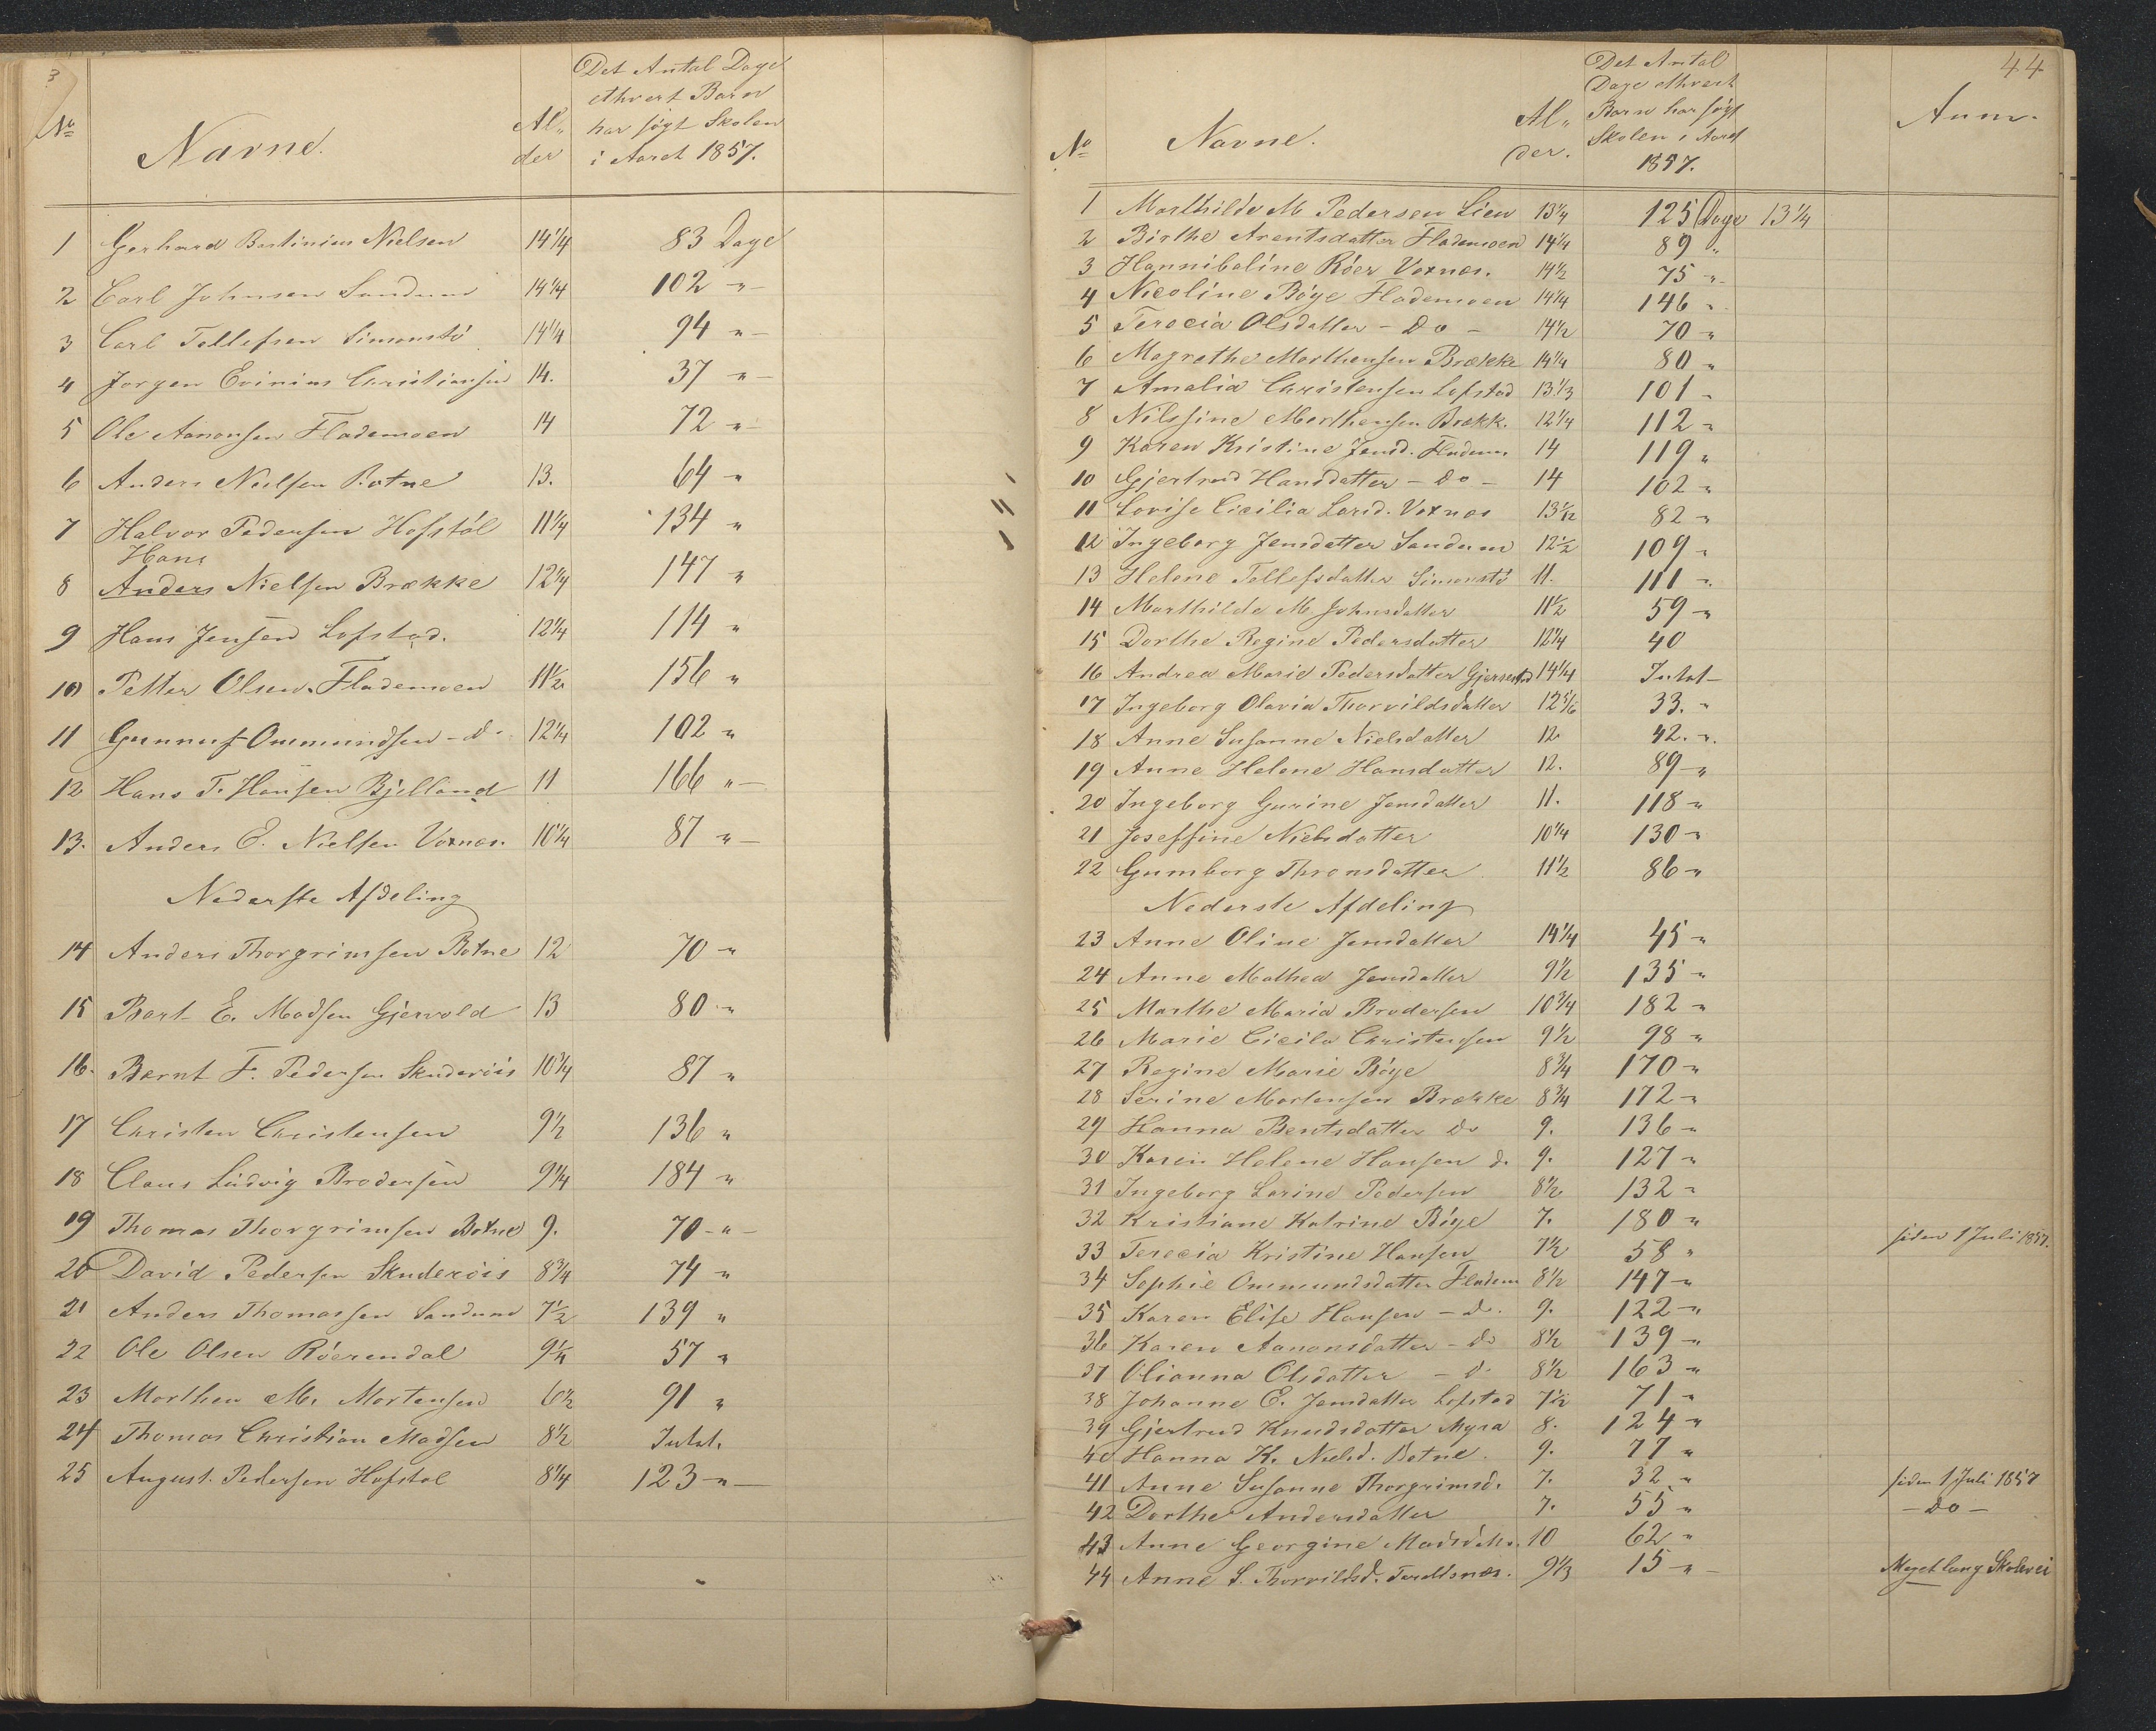 3
No
Navne.
Al„
der
Det Antal Dage
ethvert Barn
har søgt Skolen
i Aaret 1857.
1 Gerhard Bastinius Nielsen 14 1/4 83 Dage
2 Carl Johnsen Sandum 14 1/4 102 "-
3 Carl Tellefsen Simonstö 14 1/4 94 "-
4 Jorgen Evinius Christiansen 14. 37 "-
5 Ole Aanonsen Flademoen 14 72 "-
6 Anders Nielsen Botne 13. 64 "
7 Halvor Pedersen Hofstöl 11 1/4 134 "
Hans
8 Anders Nielsen Brække 12 1/4 147 "
9 Hans Jensen Lofstad. 12 1/4 114 "
10 Petter Olsen Flademoen 11 1/2 156 "
11 Gunnuf Ommundsen - d- 12 1/4 102 "
12 Hans T. Hansen Bjelland 11 166 "-
13. Anders E. Nielsen Voxnes. 10 1/4 87 "-
Nederste Afdeling
14 Anders Thorgrimsen Botne 12 70 "
15 Bert E. Madsen Gjervold 13 80 "
16. Bernt F. Pedersen Skuderöis 10 3/4 87 "
17 Christen Christensen 9 1/2 136 "
18 Claus Ludvig Brodersen 9 1/4 184 "
19 Thomas Thorgrimsen Botne 9. 70 -"-
20 David Pedersen Skuderöis 8 3/4 74 "
21 Anders Thomassen Sandum 7 1/2 139 "
22 Ole Olsen Röerendal 9 1/4 57 "
23 Morthen M. Mortensen 6 1/2 91 "
24 Thomas Christian Madsen 8 1/2 Intet.
25 August Pedersen Hofstol 8 1/4 123 "-
44
No
Navne.
Al„
der.
Det Antal
Dage ethvert
Barn har søgt
Skolen i Aaret
1857.
Anm.
1 Marthilde M Pedersen Lien 13 1/4 125 Dage 13 1/4
2 Birthe Arentsdatter Flademoen 14 1/4 89 "
3 Hannibaline Röer Voxnes. 14 1/2 75 "
4 Nicoline Böye Flademoen 14 1/4 146 "
5 Terecia Olsdatter - Do - 14 1/2 70 "
6 Magrethe Morthensen Brække 14 1/4 80 "
7 Amalia Christensen Lofstad 13 1/3 101 "
8 Nilsine Morthensen Brækk. 12 1/4 112 "
9 Karen Kristine Jensd. Fladem. 14 119 "
10 Gjertrud Hansdatter - Do - 14 102 "
11 Lovise Cicilia Larsd. Voxnes 13 1/12 82 "
12 Ingeborg Jensdatter Sandum 12 1/2 109 "
13 Helene Tellefsdatter Simonstö 11. 111 "
14 Marthilde M. Johnsdatter 11 1/2 59 "
15 Dorthe Regine Pedersdatter 12 1/4 40
16 Andrea Marie Pedersdatter Gjerrestad 14 1/4 Intet -
17 Ingeborg Olavia Thorvildsdatter 12 5/6 33. "
18 Anne Susanne Nielsdatter 12 42. "
19 Anne Helene Hansdatter 12. 89 "
20 Ingeborg Gurine Jensdatter 11. 118 "
21 Joseffine Nielsdatter 10 1/4 130 "
22 Gumborg Thronsdatter 11 1/2 86 "
Nederste Afdeling
23 Anne Oline Jensdatter 14 1/4 45 "
24 Anne Mathea Jensdatter 9 1/2 135 "
25 Marthe Maria Brodersen 10 3/4 182 "
26 Marie Cicile Christensen 9 1/2 98 "
27 Regine Marie Böye 8 3/4 170 "
28 Serine Mortensen Brække 8 3/4 172 "
29 Hanna Bentsdatter do 9. 136 "
30 Karen Helene Hansen d. 9. 127 "
31 Ingeborg Larine Pedersen 8 1/2 132 "
32 Kristiane Katrine Böye 7. 180 "
33 Terecia Kristine Hansen 7 1/2 58 " siden 1 Juli 1857.
34 Sophie Ommundsdatter Fladem 8 1/2 147 "
35 Karen Elise Hansen - d. 9. 122 "
36 Karen Aanonsdatter - do 8 1/2 139 "
37 Olianna Olsdatter - d. 8 1/2 163 "
38 Johanne E. Jensdatter Lofstad 7 1/2 71 "
39 Gjertrud Knudsdatter Myra 8. 124 "
40 Hanna K. Nielsd. Botne. 9. 77 "
41 Anne Susanne Thorgrimsd. 7. 32 " siden 1 Juli 1857
42 Dorthe Andersdatter 7. 55 " - Do -
43 Anne Georgine Madsdatt. 10 62 "
44 Anne S. Thorvildsd. 9 1/3 15 "- Meget lang Skolevei